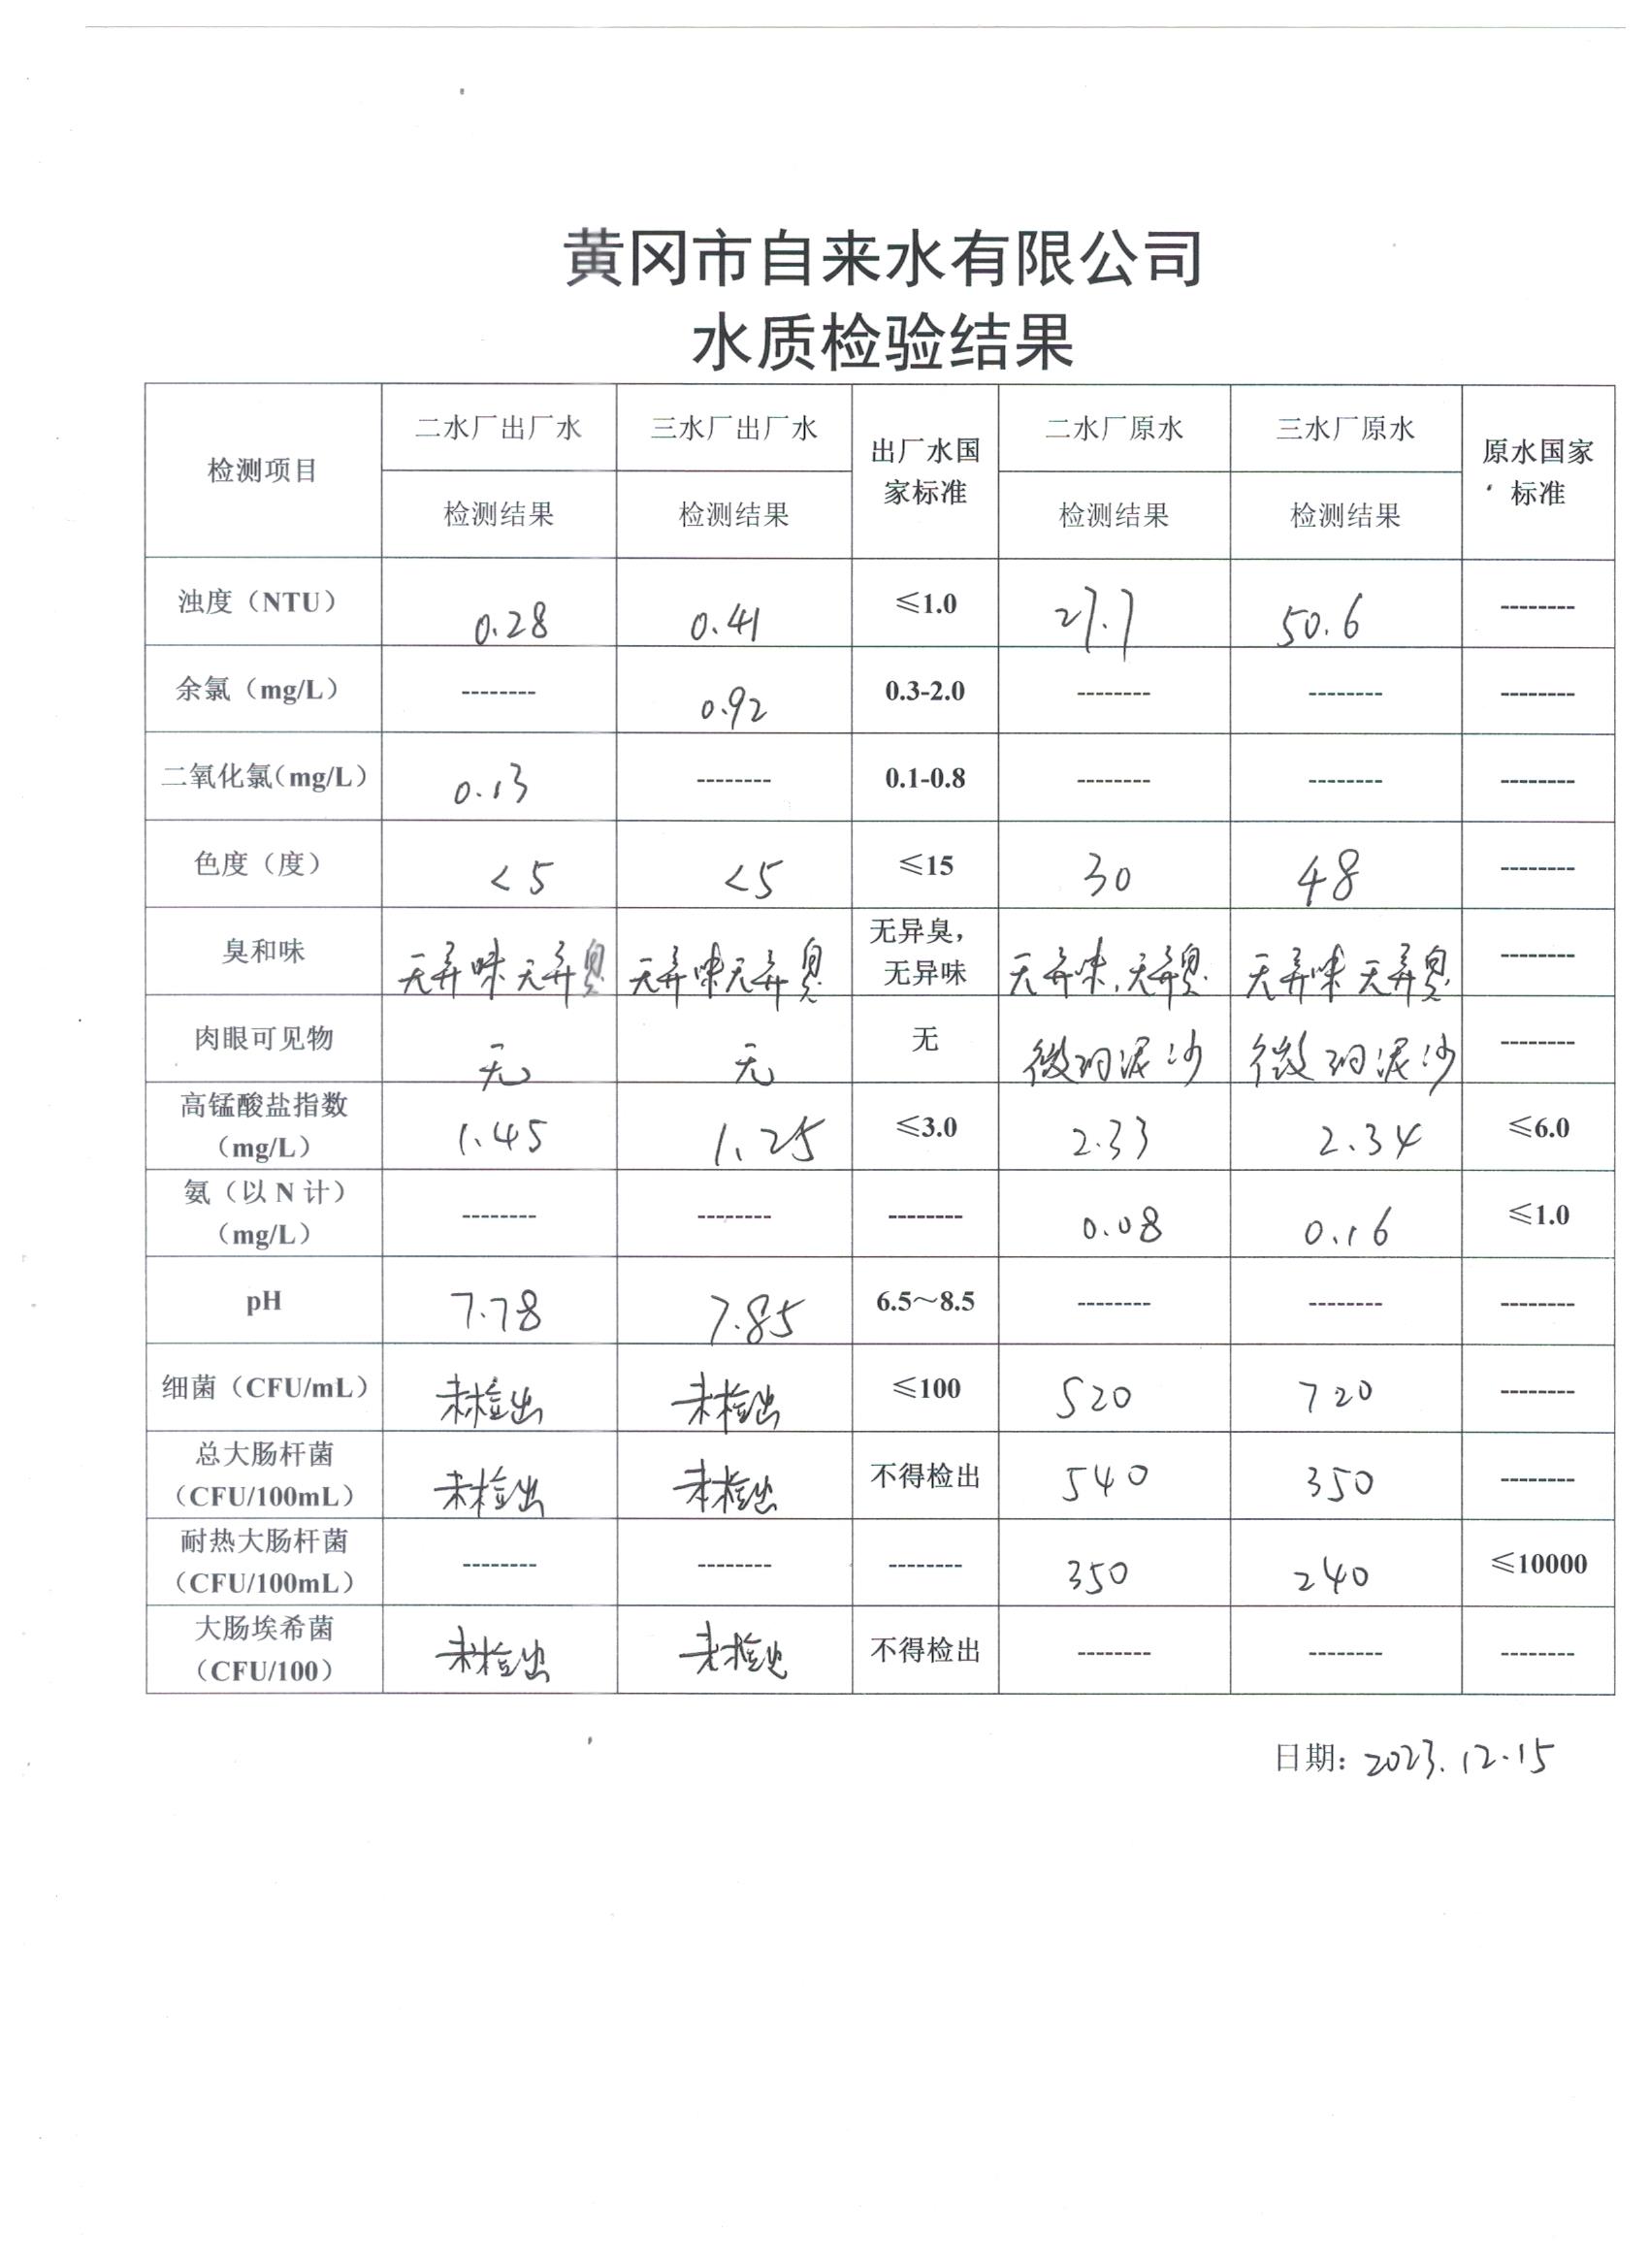 黄冈市自来水有限公司
水质检验结果
检测项目 二水厂出厂水 三水厂出厂水 出厂水国家标准 二水厂原水 三水厂原水 原水国家标准
检测结果 检测结果 检测结果 检测结果
浊度（NTU） 0.28 0.41 ≤1.0 27.7 50.6 --------
余氯（mg/L） -------- 0.92 0.3-2.0 -------- -------- --------
二氧化氯（mg/L） 0.13 -------- 0.1-0.8 -------- -------- --------
色度（度） <5 <5 ≤15 30 48 --------
臭和味 无异味 无异臭 无异味无异臭 无异臭，无异味 无异味，无异臭 无异味 无异臭 --------
肉眼可见物 无 无 无 微细泥沙 微细泥沙 --------
高锰酸盐指数（mg/L） 1.45 1.25 ≤3.0 2.33 2.34 ≤6.0
氨（以 N 计）（mg/L） -------- -------- -------- 0.08 0.16 ≤1.0
pH 7.78 7.85 6.5～8.5 -------- -------- --------
细菌（CFU/mL） 未检出 未检出 ≤100 520 720 --------
总大肠杆菌（CFU/100mL） 未检出 未检出 不得检出 540 350 --------
耐热大肠杆菌（CFU/100mL） -------- -------- -------- 350 240 ≤10000
大肠埃希菌（CFU/100） 未检出 未检出 不得检出 -------- -------- --------
日期：2023.12.15